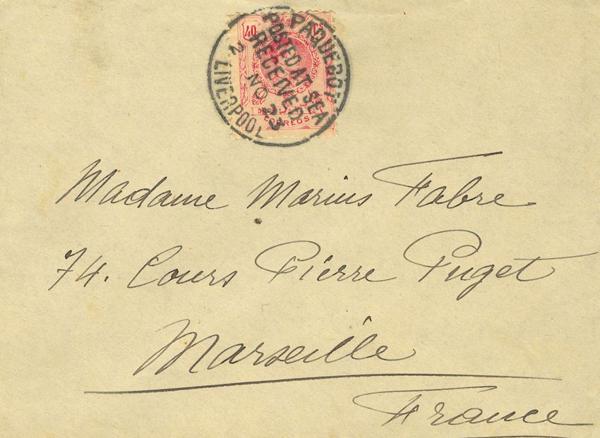 PAQUEBOT
POSTED AT SEA
RECEIVED
NO 23
LIVERPOOL
CORREOS
Madame Marius Fabre
74. Cours Pierre Puget
Marseille
France